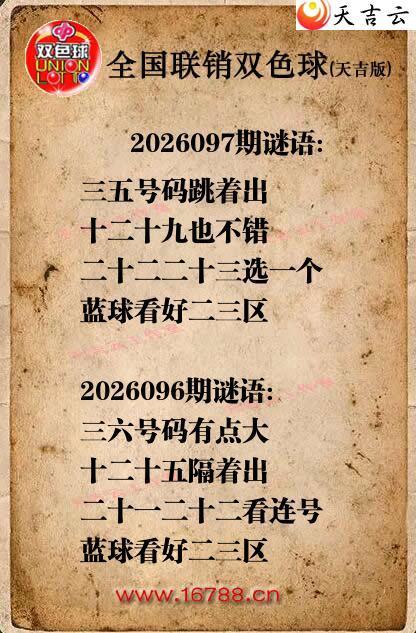 天吉云
双色球
UNION
LOTTO
全国联销双色球(天吉版)
2026097期谜语:
三五号码跳着出
十二十九也不错
二十二二十三选一个
蓝球看好二三区
2026096期谜语:
三六号码有点大
十二十五隔着出
二十一二十二看连号
蓝球看好二三区
www.16788.cn